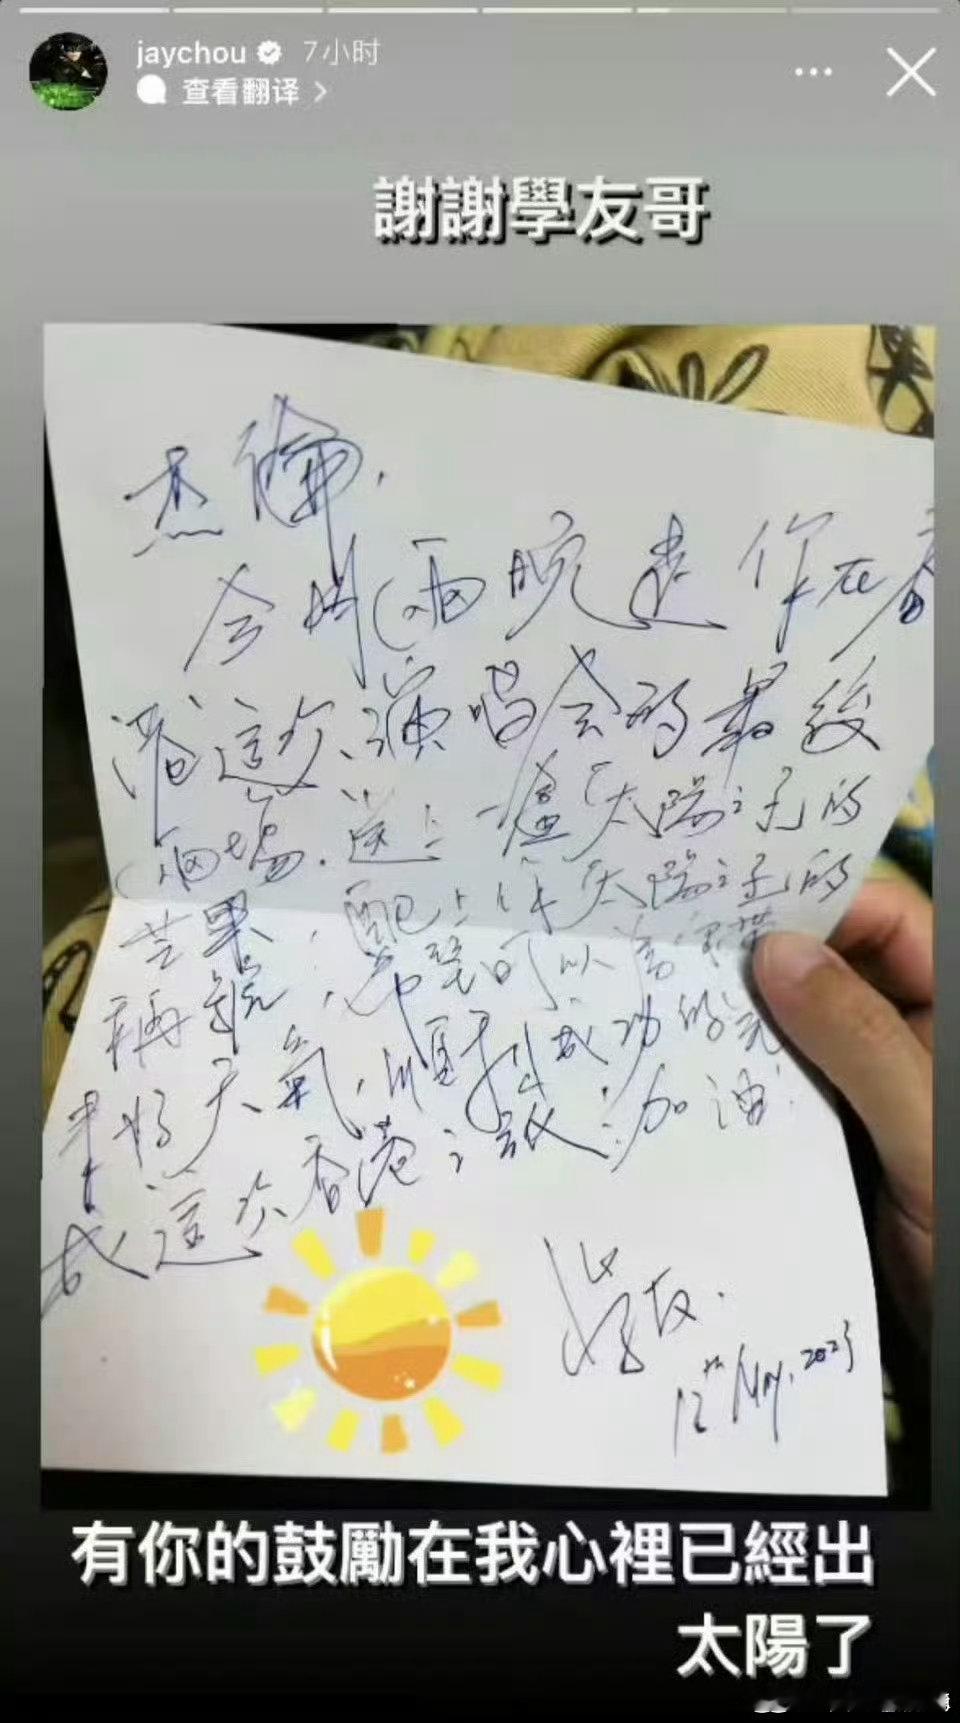 jaychou 7小时
查看翻译 >
謝謝學友哥
杰倫，
今明兩晚是你在香
港這次演唱會的最後
兩場，送上一盒「太陽之子的
芒果，配上你「太陽之子的
稱號，希望可以為你帶
來好天氣，順利成功的完
成這次香港之旅！加油！
學友
12th May, 2023
有你的鼓勵在我心裡已經出
太陽了